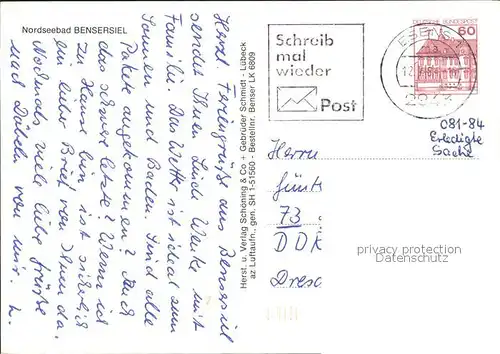 Nordseebad BENSERSIEL
Herzl. Feriengrüße aus Bensersiel
sendet Ihnen Luide Werke mit
Familie. Das Wetter ist ideal zum
Sonnen und Baden. Sind alle
Pakete angekommen? Auch
das schwere letzte? Wenn ich
zu Hause bin ist sicherlich
ein lieber Brief von Ihnen da.
Nochmals viele liebe Grüße
nach Döbeln von mir. L.
Herst. u. Verlag Schöning & Co + Gebrüder Schmidt - Lübeck
az Luftaufn., gen. SH 1-51560 - Bestellnr. Benser LK 6809
Schreib
mal
wieder
Post
DEUTSCHE BUNDESPOST
60
ESENS
2943
081-84
Erledigte
Sache
Herrn
Günt
73
DDR
Dresd
privacy protection
Datenschutz